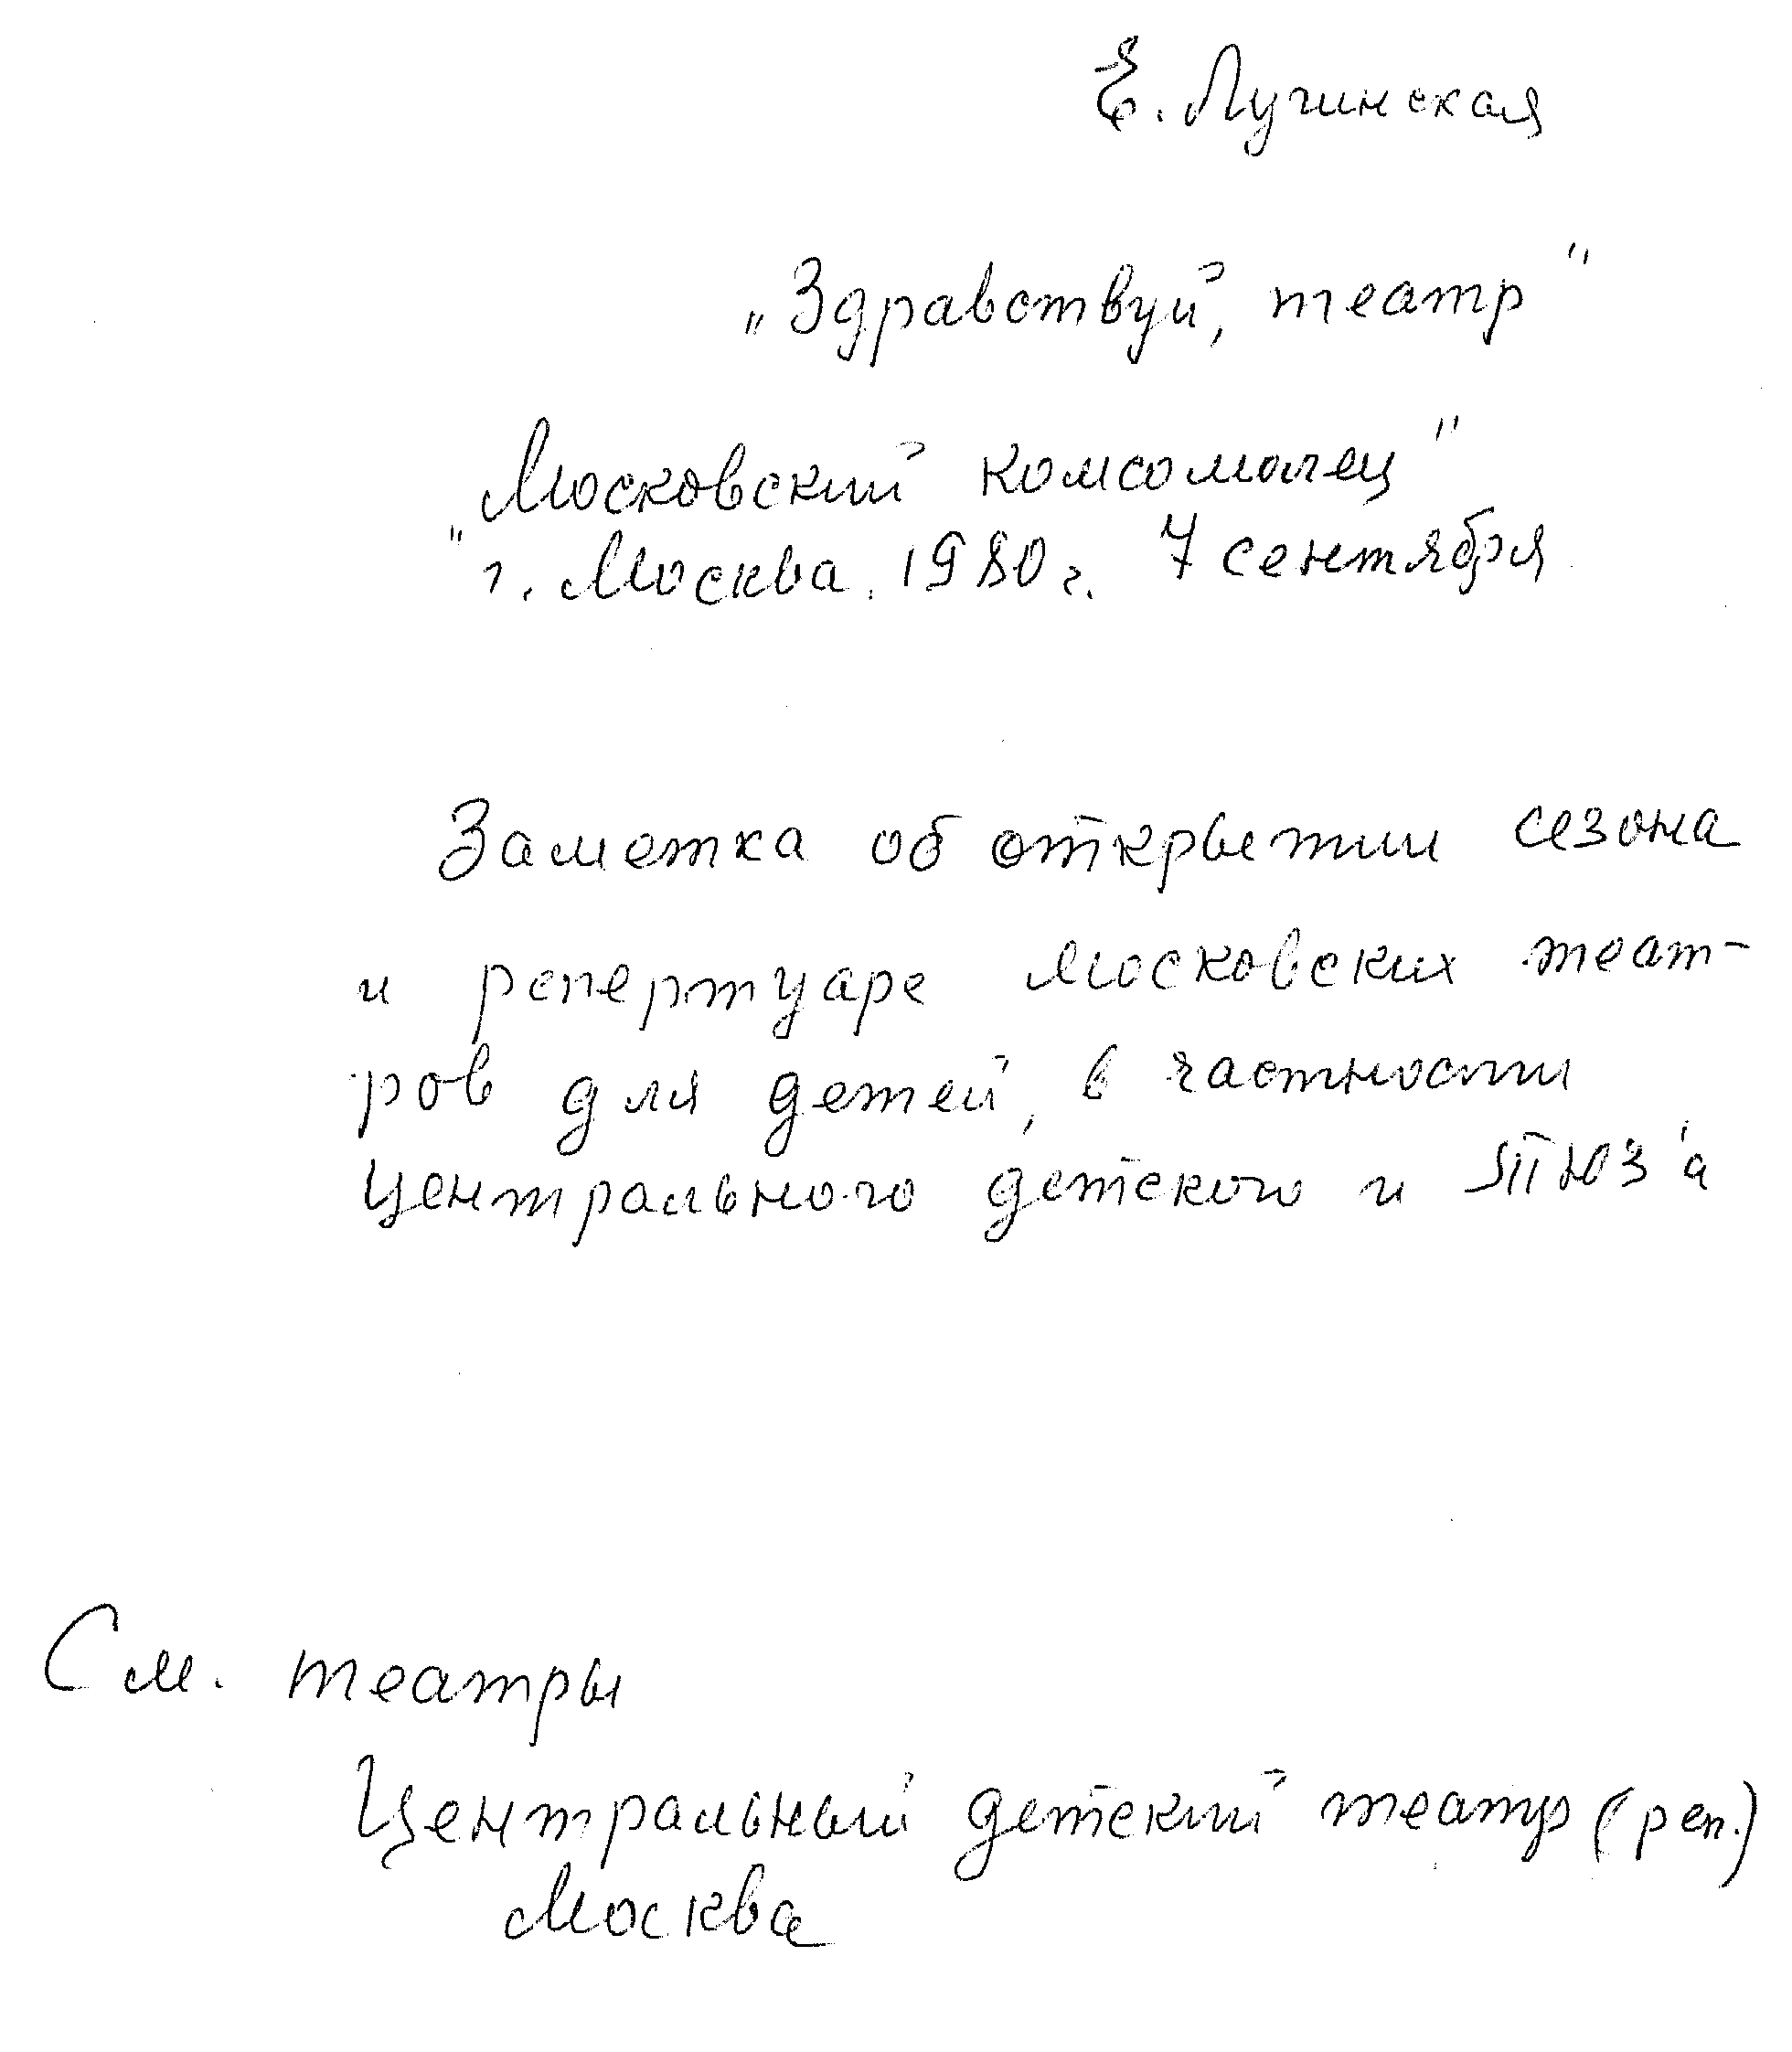 Е. Лучинская
„Здравствуй, театр"
„Московский комсомолец"
г. Москва. 1980 г. 7 сентября
Заметка об открытии сезона
и репертуаре московских теат-
ров для детей, в частности
Центрального детского и ТЮЗ'а
См. театры
Центральный детский театр (реп.)
Москва